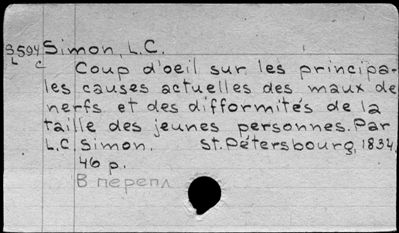 S594 Simon, L.C.
L c
Coup d'oeil sur les principa-
les causes actuelles des maux de
nerfs et des difformités de la
taille des jeunes personnes. Par
L.C. Simon. St. Pétersbourg, 1834,
46 p.
В перепл